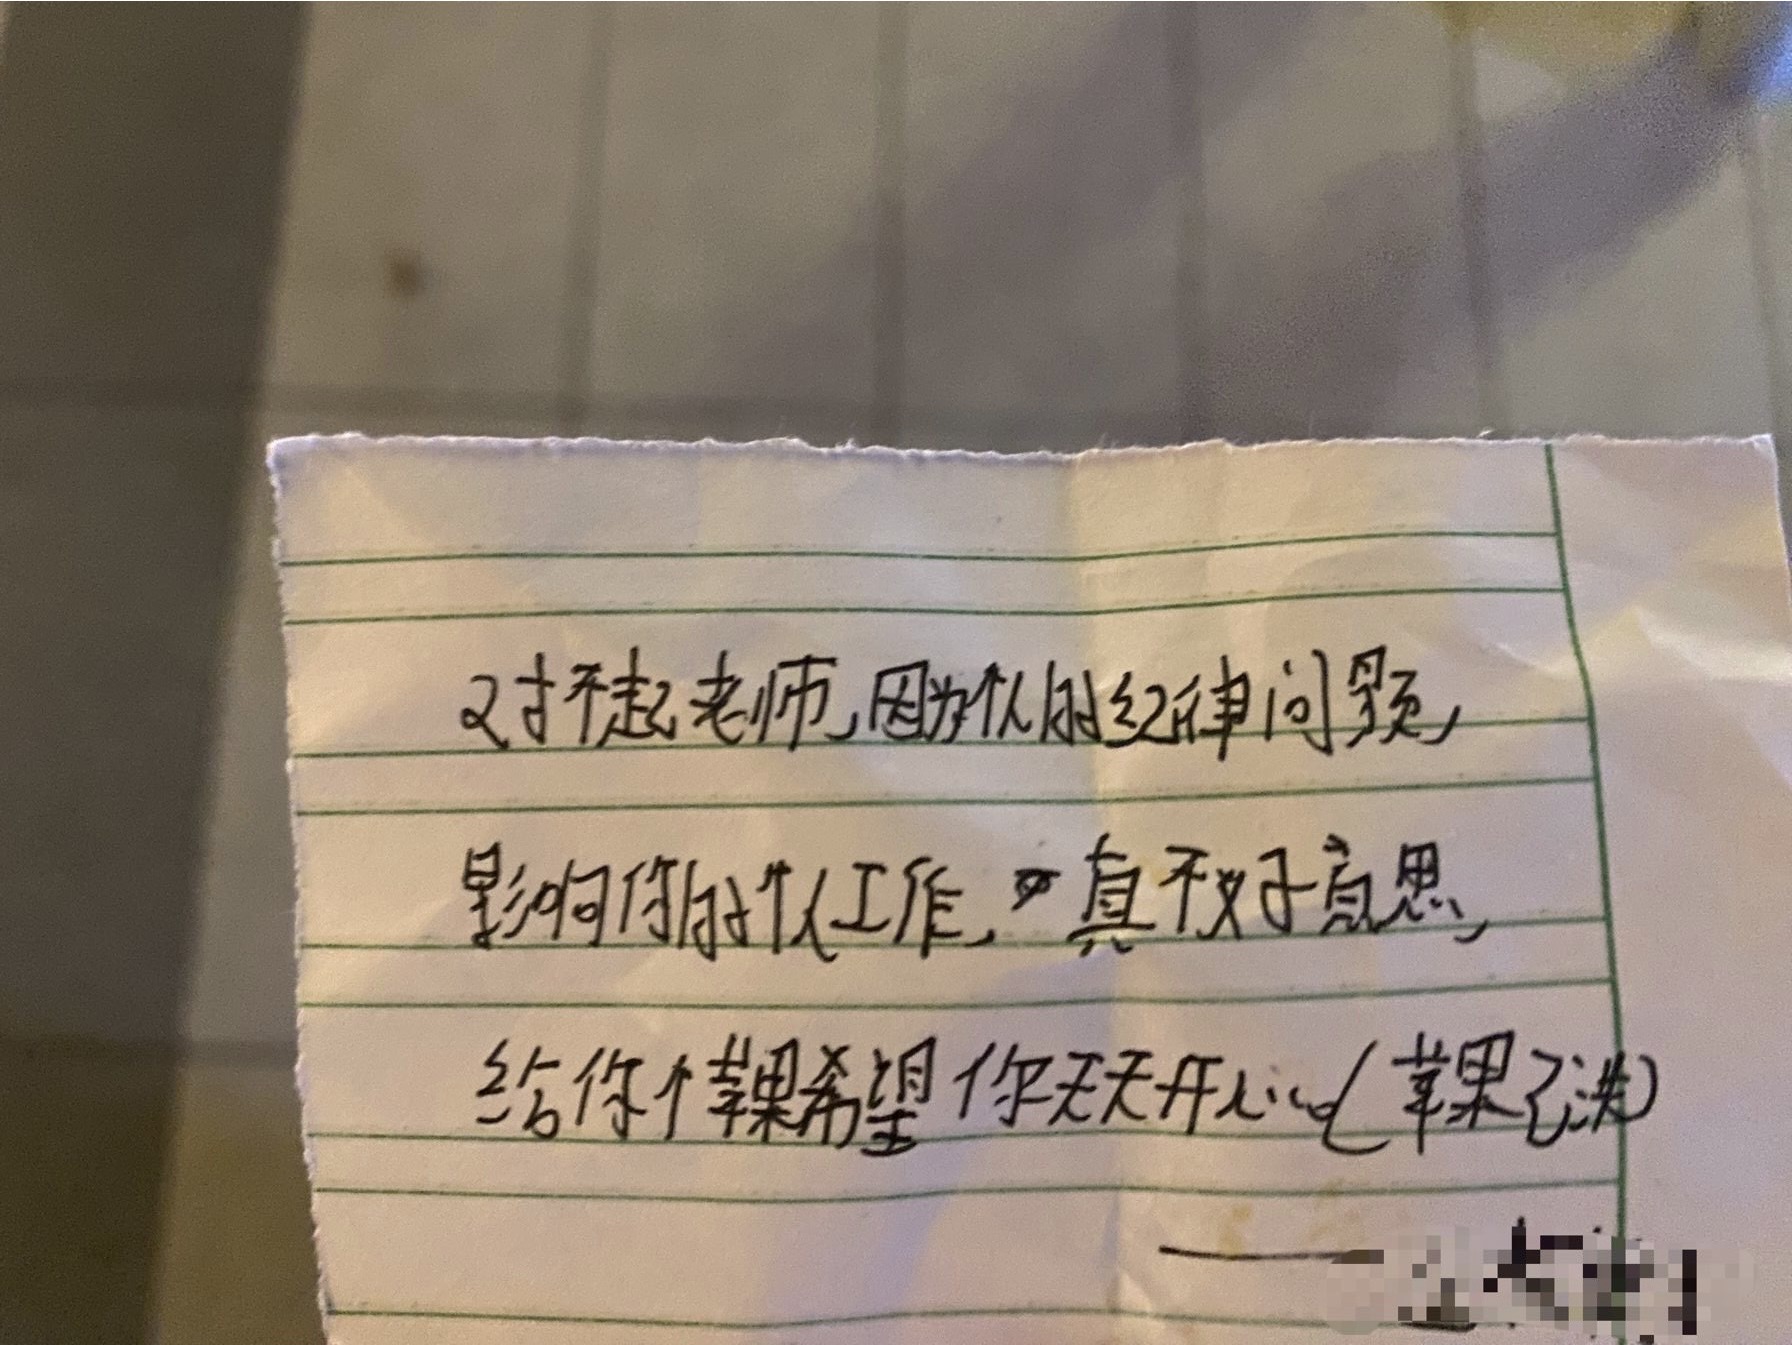 对不起老师，因为个人的纪律问题，
影响你的个人工作，真不好意思，
给你个苹果希望你天天开心。（苹果已洗）